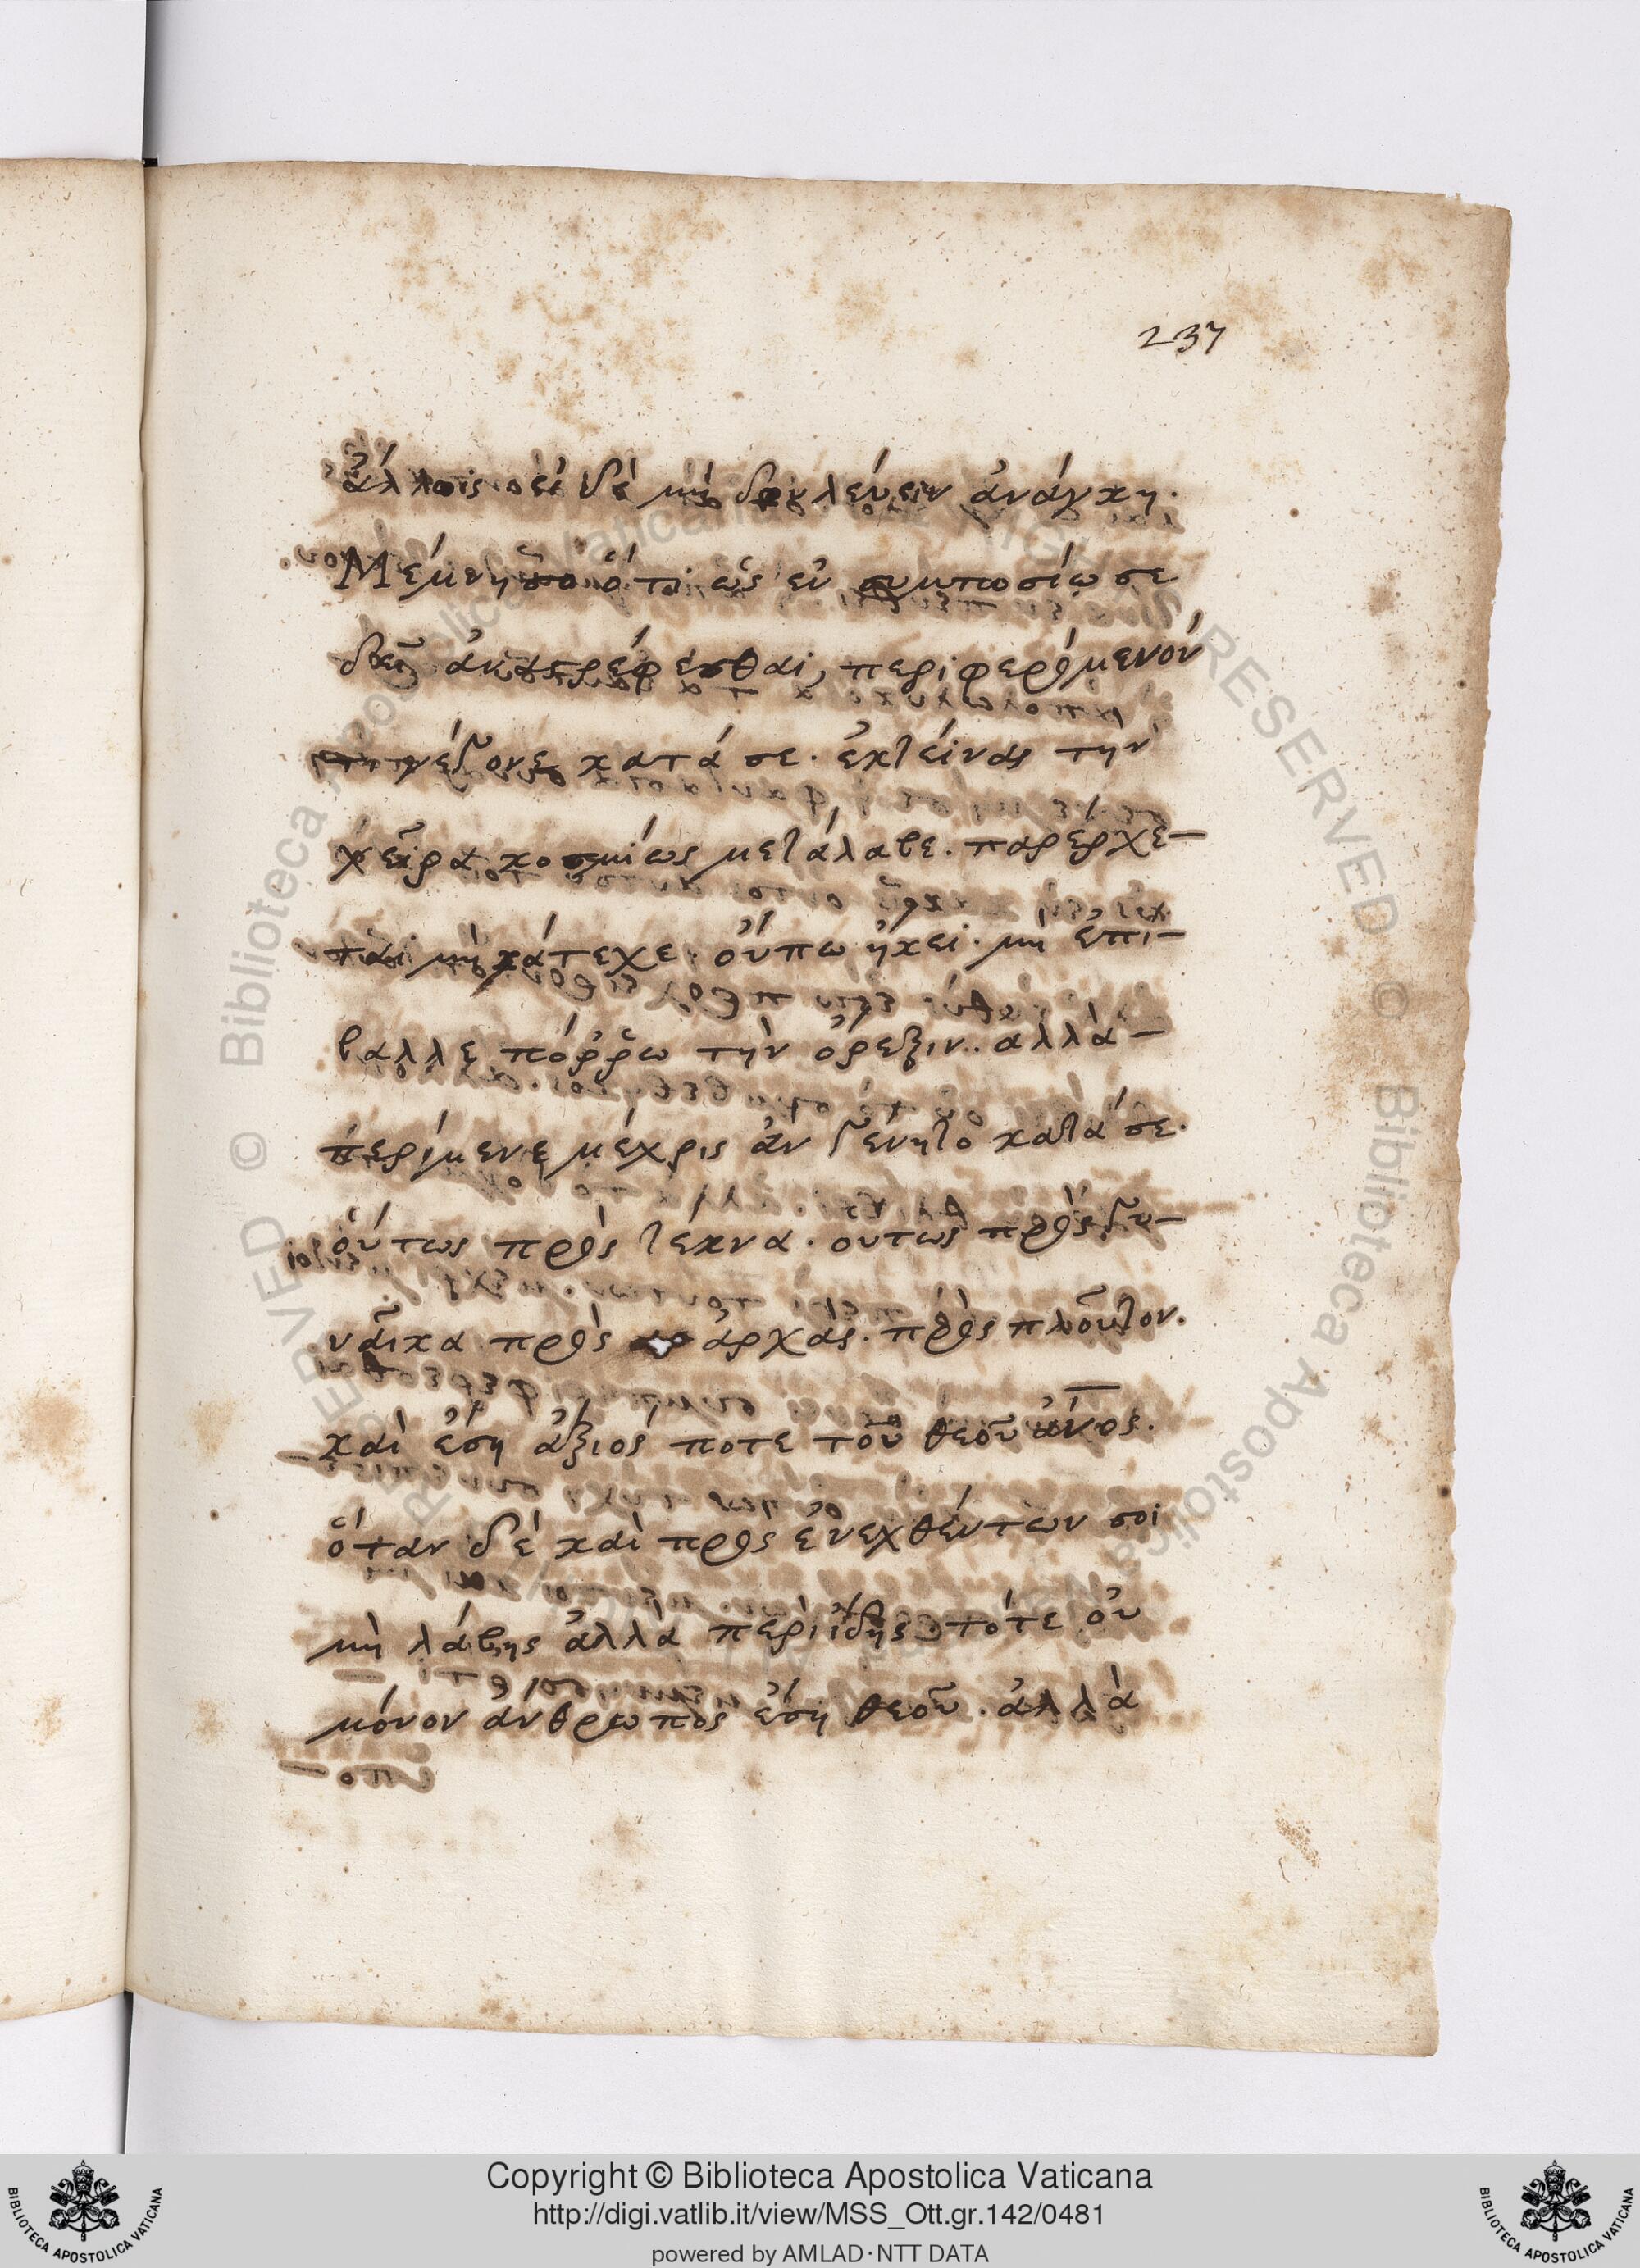 237
ἄλλοις· εἰ δὲ μὴ δουλεύειν ἀνάγκη·
Μέμνησο ὅτι ὡς ἐν συμποσίω σε
δεῖ ἀναστρέφεσθαι, περιφερόμενον
γέγονε κατά σε· ἐκτείνας τὴν
χεῖρα κοσμίως μετάλαβε· παρέρχε-
ται μὴ κάτεχε· οὔπω ἥκει· μὴ ἐπί-
βαλλε πόῤῥω τὴν ὄρεξιν· ἀλλὰ-
περίμενε μέχρις ἂν γένητο κατά σε·
οὕτως πρὸς τέκνα· οὕτως πρὸς γυ-
ναῖκα πρὸς ἀρχάς· πρὸς πλοῦτον.
καὶ ἔση ἄξιός ποτε τοῦ θεοῦ ἄν̅ος.
ὅταν δὲ καὶ προσενεχθέντων σοι
μὴ λάβης ἀλλὰ περιίδης· τότε οὐ
μόνον ἄνθρωπος ἔση θεοῦ· ἀλλὰ
Copyright © Biblioteca Apostolica Vaticana
http://digi.vatlib.it/view/MSS_Ott.gr.142/0481
powered by AMLAD·NTT DATA
BIBLIOTECA APOSTOLICA VATICANA
BIBLIOTECA APOSTOLICA VATICANA